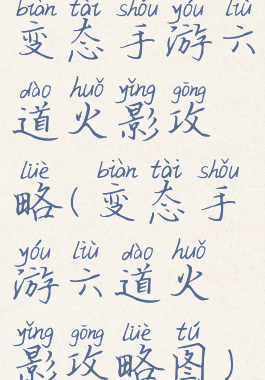 biàn tài shǒu yóu liù
变态手游六
dào huǒ yǐng gōng
道火影攻
lüè biàn tài shǒu
略(变态手
yóu liù dào huǒ
游六道火
yǐng gōng lüè tú
影攻略图)